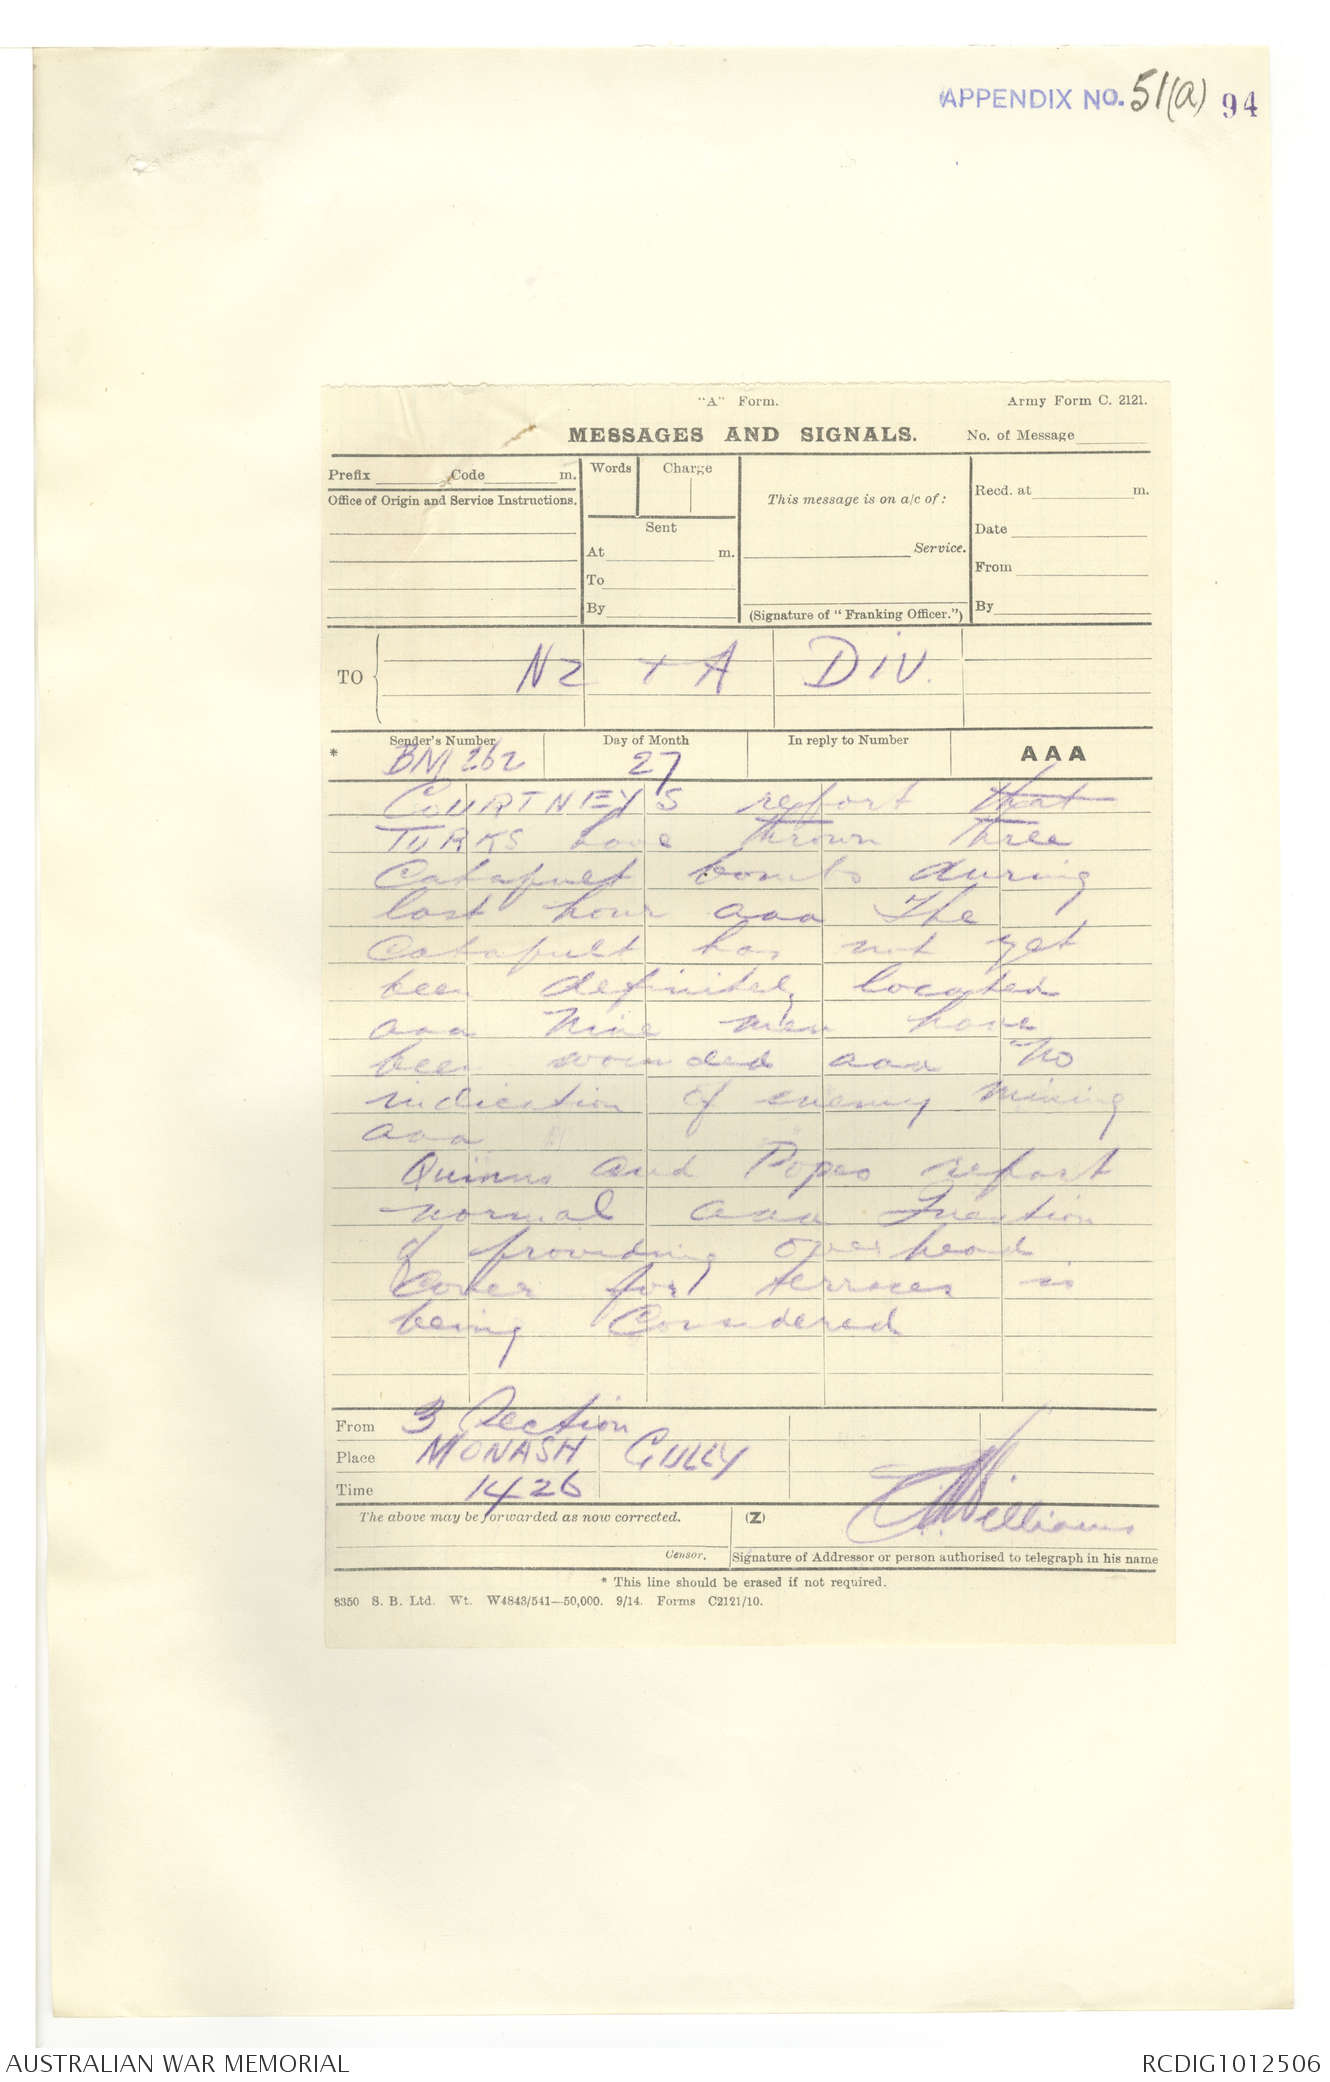 APPENDIX NO. 51(a) 94
"A" Form.
Army Form C. 2121.
MESSAGES AND SIGNALS.
No. of Message
Prefix Code m.
Words Charge
This message is on a/c of:
Recd. at m.
Office of Origin and Service Instructions.
Sent
Date
At m.
Service.
From
To
By
(Signature of "Franking Officer.")
By
TO
NZ + A DIV.
Sender's Number
Day of Month
In reply to Number
AAA
* BM 262 27
COURTNEYS report that
TURKS have thrown three
Catapult bombs during
last hour aaa The
Catapult has not yet
been definitely located
aaa Nine men have
been wounded aaa No
indication of enemy mining
aaa
Quinns and Popes report
normal aaa Question
of providing over head
cover for terraces is
being Considered
From 3 Section
Place MONASH GULLY
Time 1426
Williams
The above may be forwarded as now corrected.
(Z)
Censor.
Signature of Addressor or person authorised to telegraph in his name
* This line should be erased if not required.
8350 S. B. Ltd. Wt. W4843/541—50,000. 9/14. Forms C2121/10.
AUSTRALIAN WAR MEMORIAL
RCDIG1012506